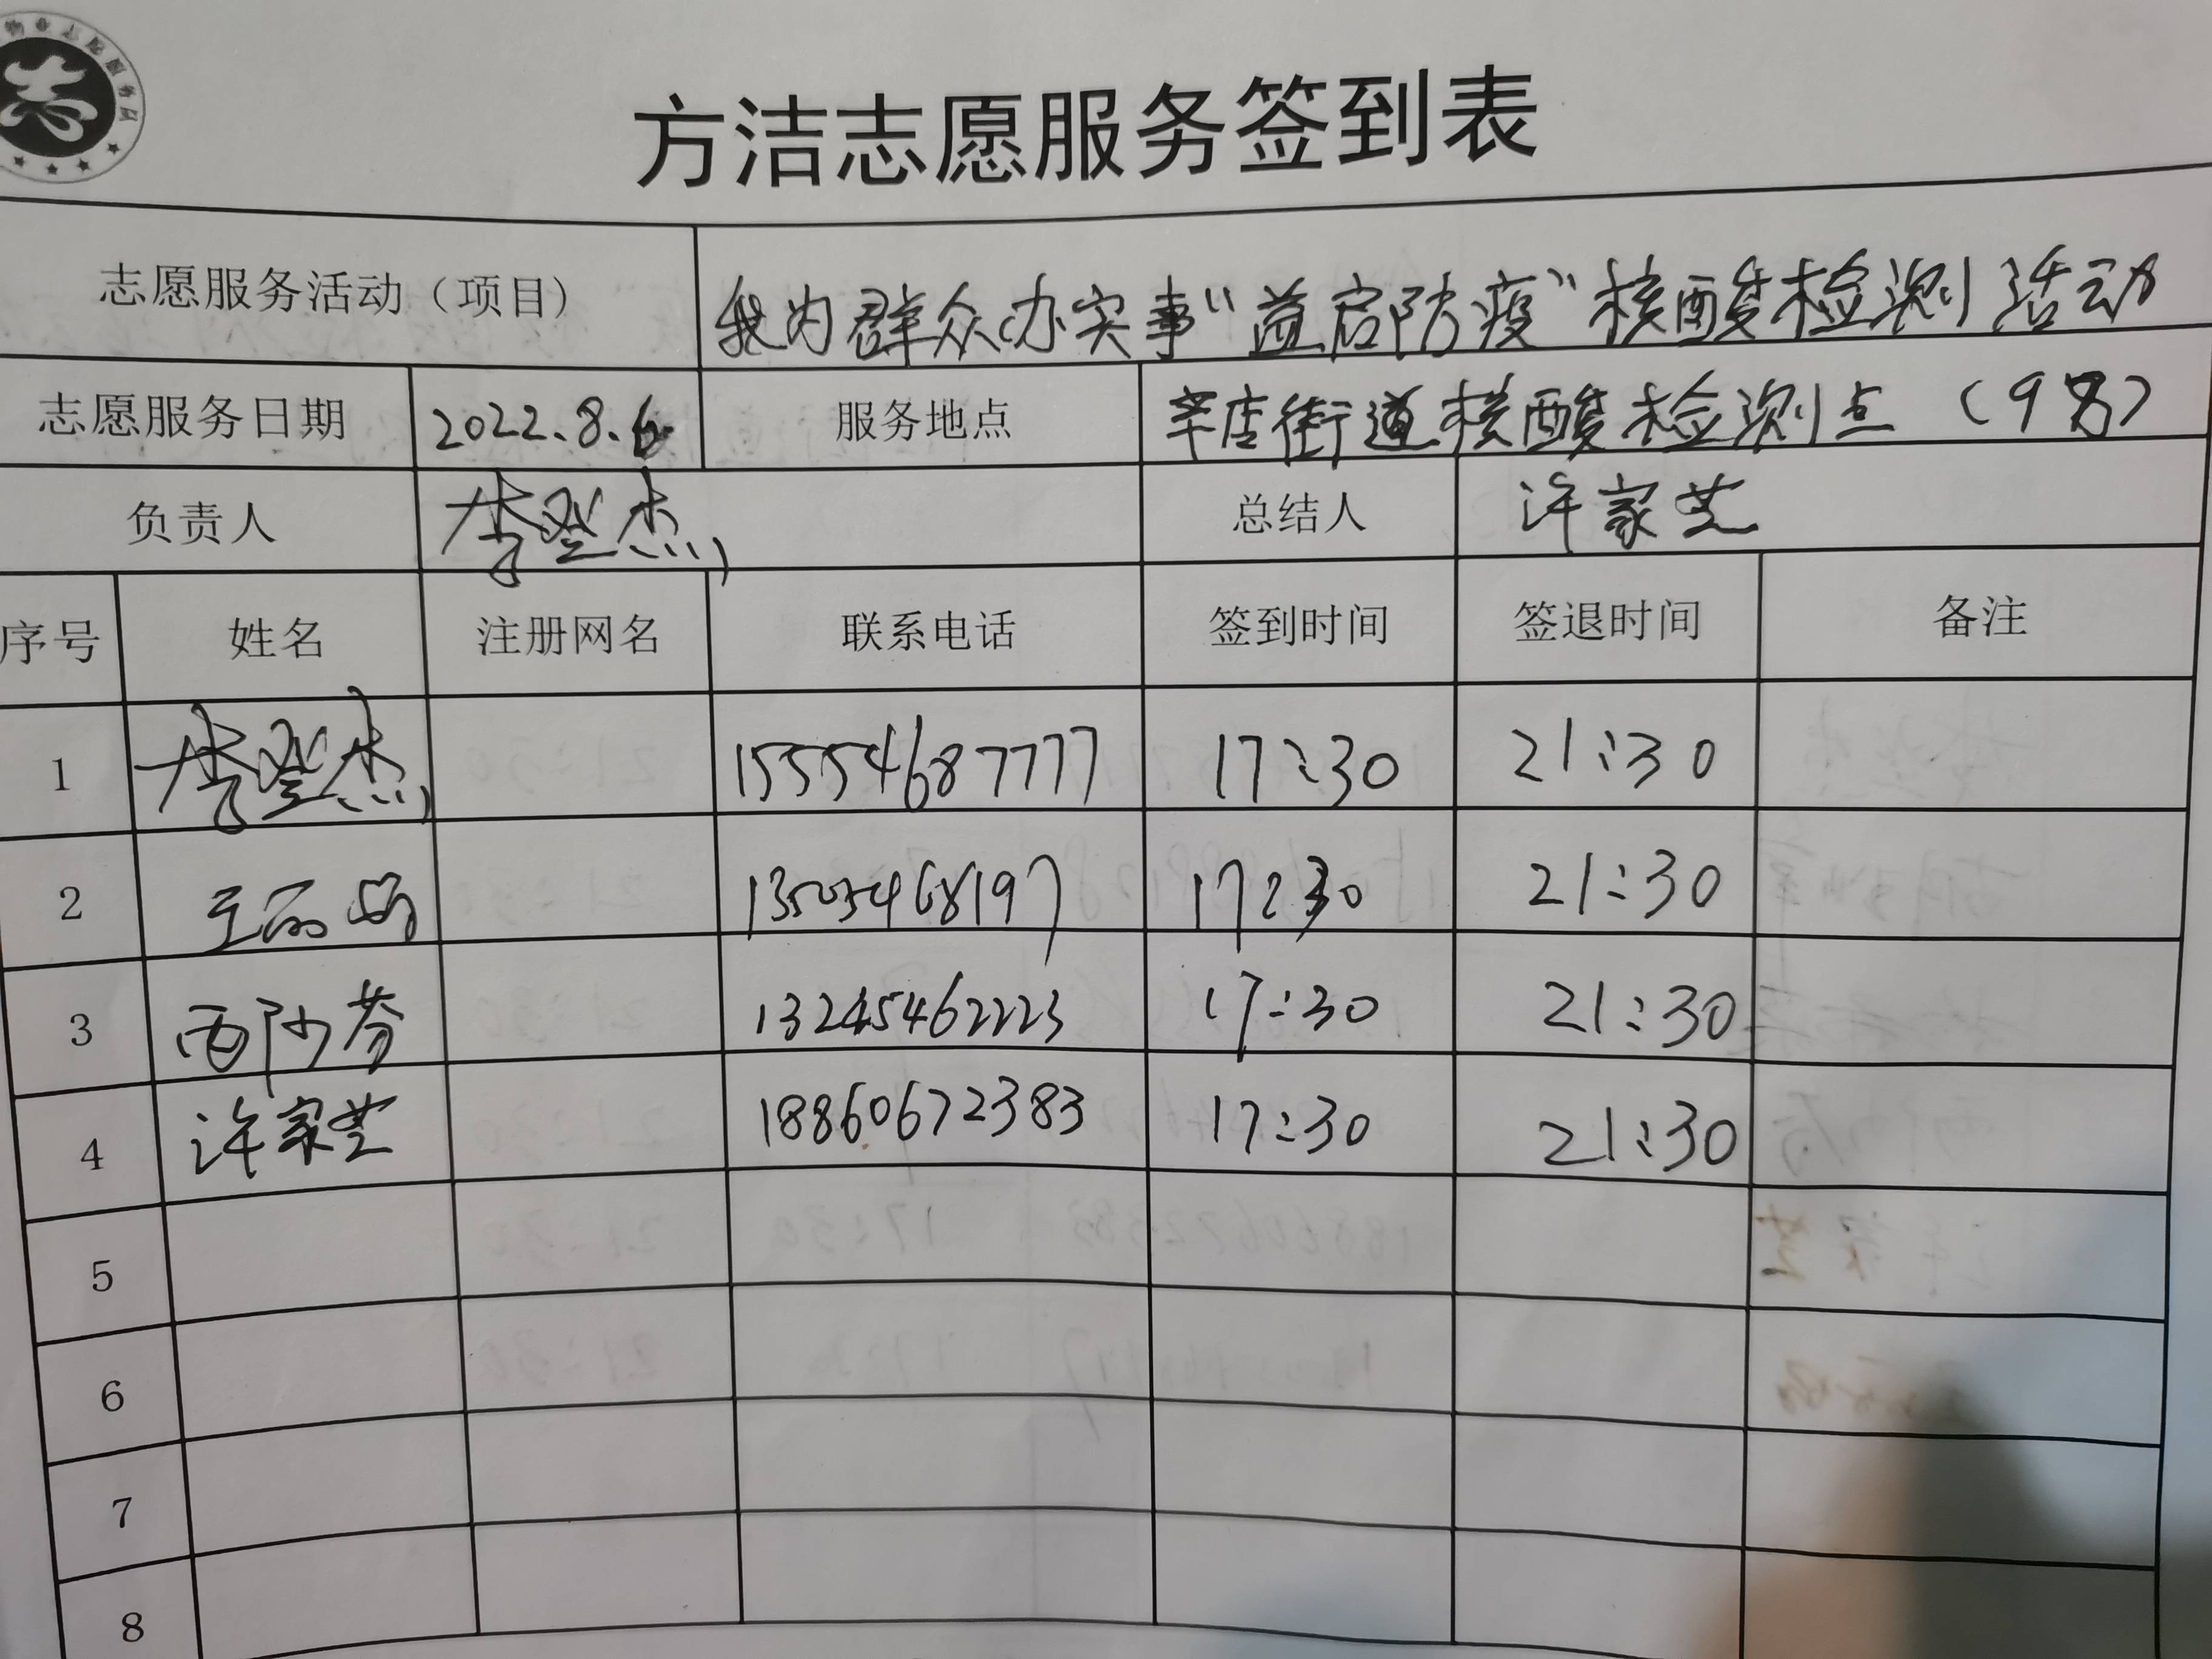 物业志愿服务队
志
方洁志愿服务签到表
志愿服务活动（项目） 我为群众办实事“益启防疫”核酸检测活动
志愿服务日期 2022.8.6 服务地点 辛店街道核酸检测点（9号）
负责人 李登杰 总结人 许家芝
序号 姓名 注册网名 联系电话 签到时间 签退时间 备注
1 李登杰 15554687777 17:30 21:30
2 王丽娟 13505468197 17:30 21:30
3 13245462223 17:30 21:30
4 许家芝 18860672383 17:30 21:30
5
6
7
8